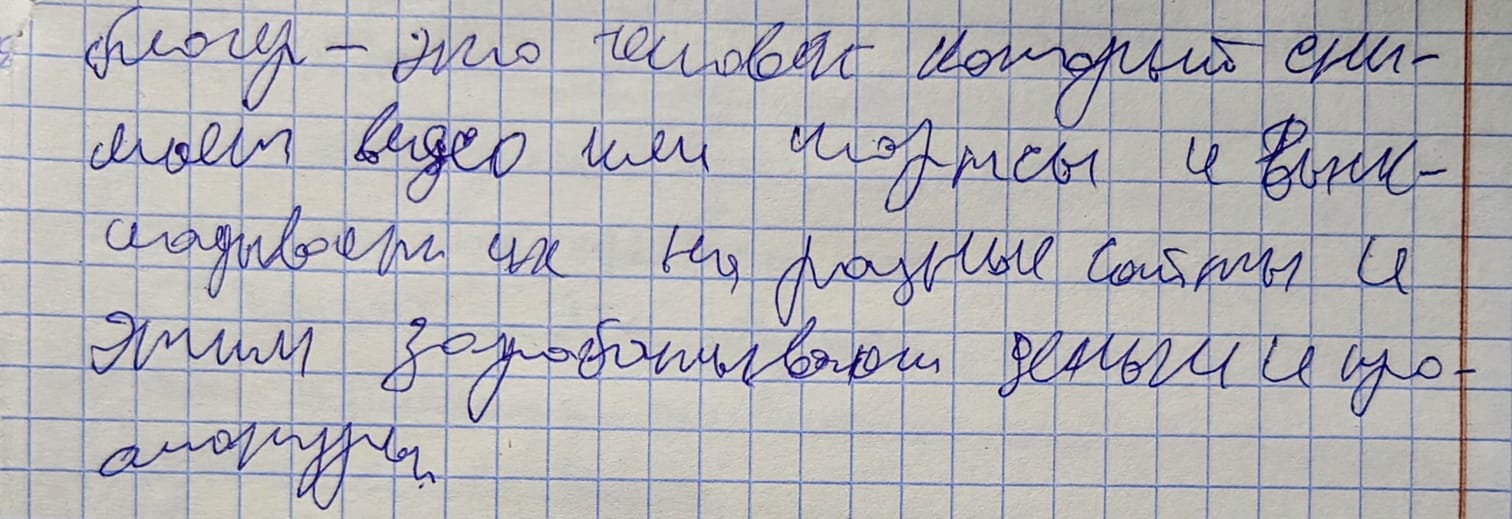 блогер – это человек который сни-
мает видео или шортсы и вык-
ладывает их на разные сайты и
этим зарабатывают деньги и про-